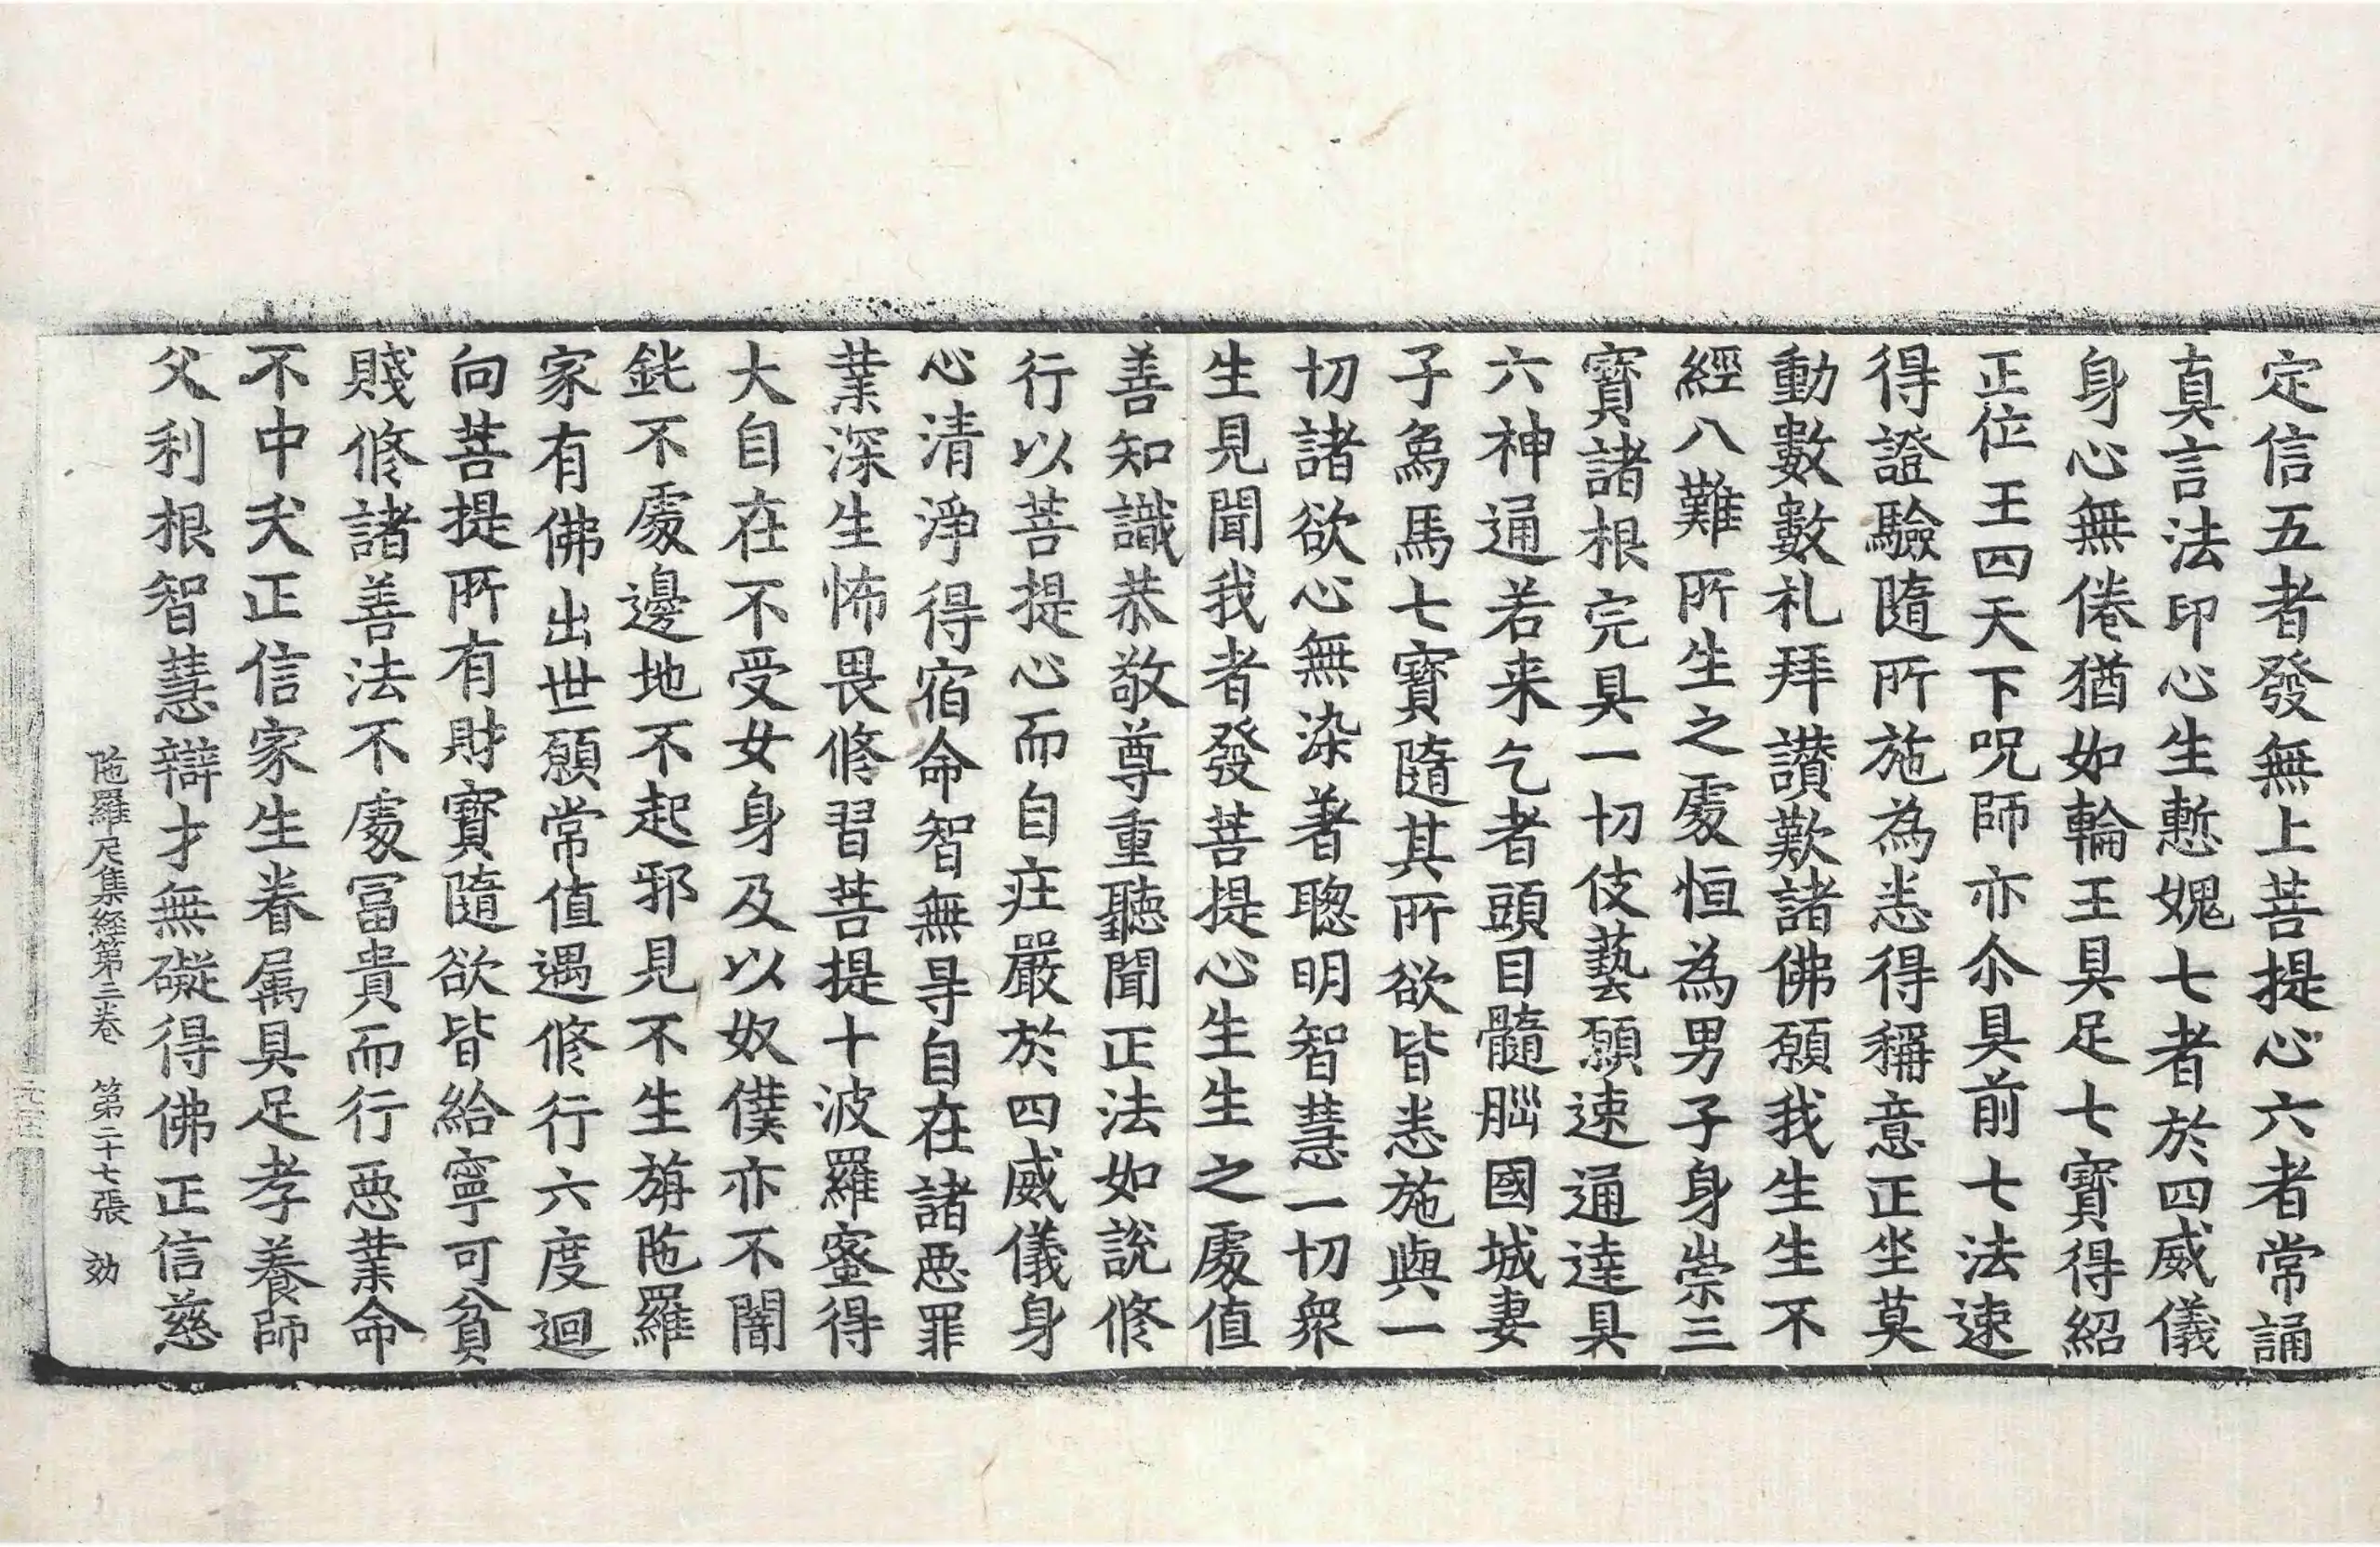 定信五者發無上菩提心六者常誦
真言法印心生慙媿七者於四威儀
身心無倦猶如輪王具足七寶得紹
正位王四天下呪師亦尒具前七法速
得證驗隨所施為悉得稱意正坐莫
動數數礼拜讃歎諸佛願我生生不
經八難所生之處恒為男子身崇三
寶諸根完具一切伎藝願速通達具
六神通若来乞者頭目髓𦛁國城妻
子鳥馬七寶隨其所欲皆悉施與一
切諸欲心無染著聰明智慧一切衆
生見聞我者發菩提心生生之處值
善知識恭敬尊重聽聞正法如說修
行以菩提心而自庄嚴於四威儀身
心清淨得宿命智無㝵自在諸惡罪
業深生怖畏修習菩提十波羅蜜得
大自在不受女身及以奴僕亦不闇
鈋不處邊地不起邪見不生旃陁羅
家有佛出世願常值遇修行六度迴
向菩提所有財寶隨欲皆給寧可貧
賤修諸善法不處冨貴而行惡業命
不中夭正信家生眷属具足孝養師
父利根智慧辯才無礙得佛正信慈
陁羅尼集経第三卷 第二十七張 効